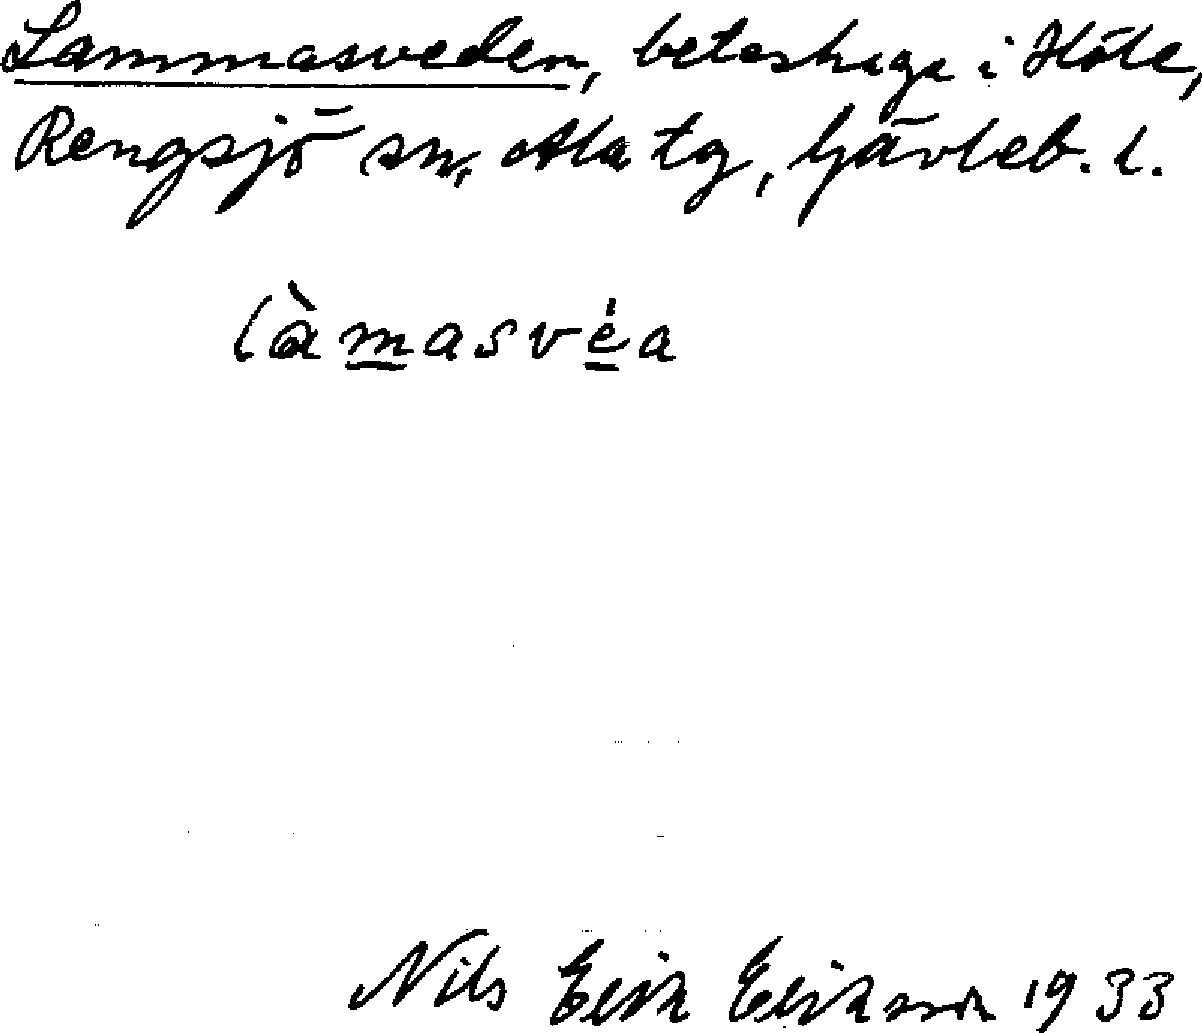 Lammasveden, beteshage i Höle,
Rengsjö sn, Ala tg, Gävleb. l.
làmasvéa
Nils Erik Eriksson 1933